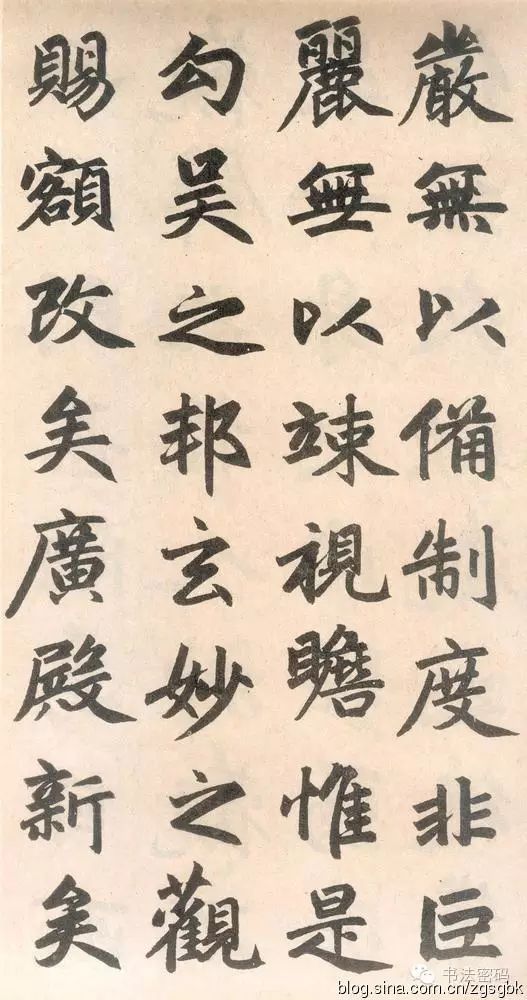 嚴無以備制度非巨
麗無以竦視瞻惟是
勾吴之邦玄妙之觀
賜額改矣廣殿新矣
书法密码
blog.sina.com.cn/zgsgbk